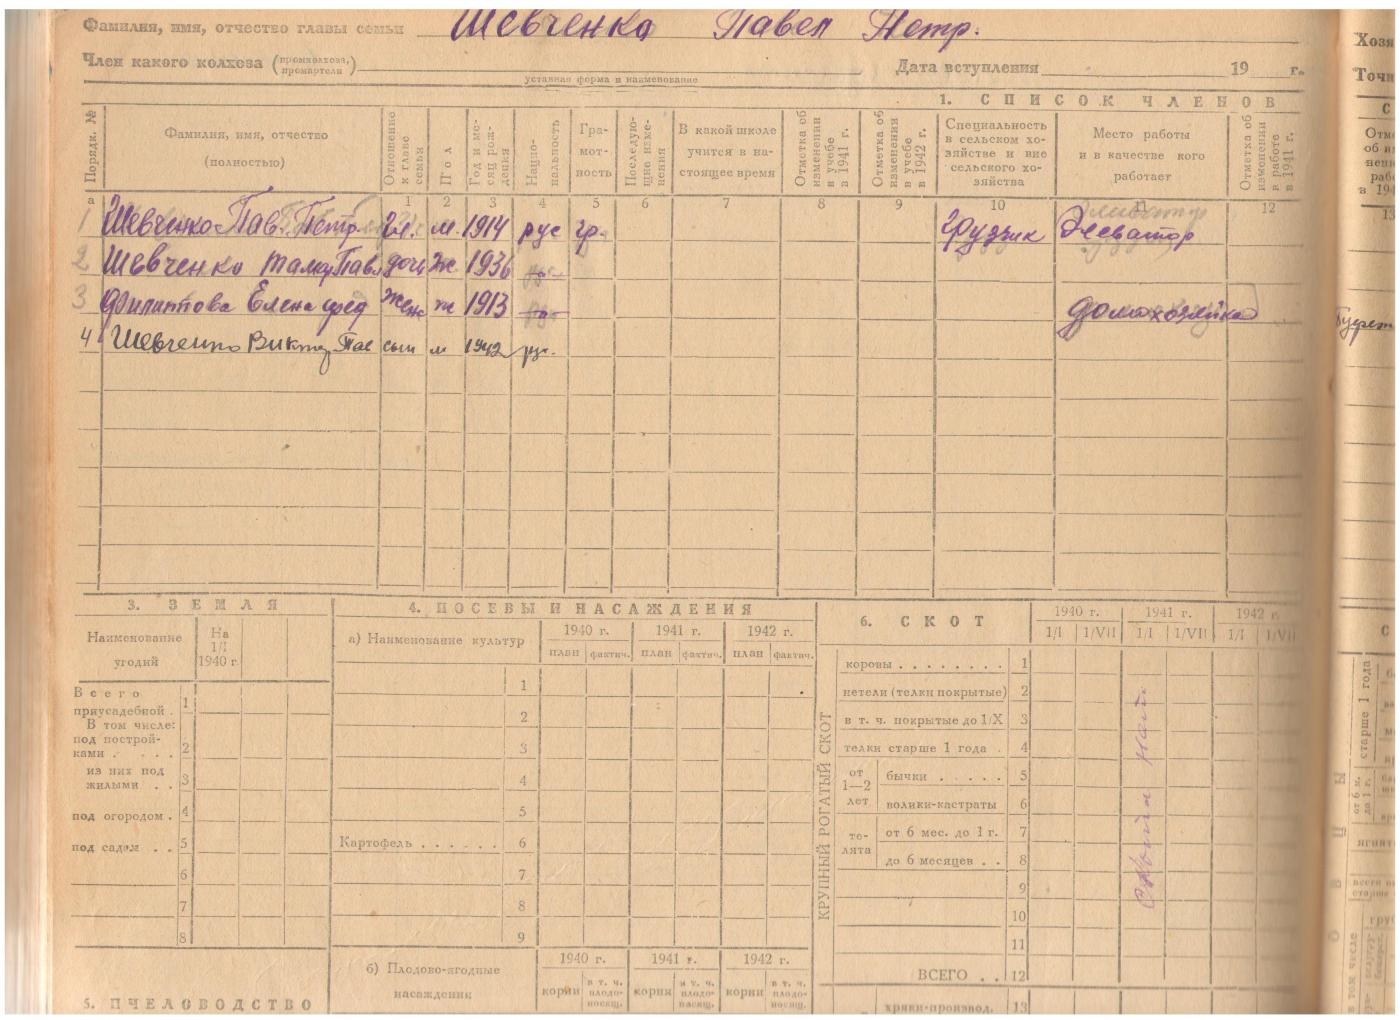 Фамилия, имя, отчество главы семьи Шевченко Павел Петр.
Член какого колхоза (промколхоза, промартели)
уставная форма и наименование
Дата вступления 19 г.
1. СПИСОК ЧЛЕНОВ
Порядк. № Фамилия, имя, отчество (полностью) Отношение к главе семьи Пол Год и месяц рождения Национальность Грамотность Последующие изменения В какой школе учится в настоящее время Отметка об изменении в учебе в 1941 г. Отметка об изменении в учебе в 1942 г. Специальность в сельском хозяйстве и вне сельского хозяйства Место работы и в качестве кого работает Отметка об изменении в работе в 1941 г.
а 1 2 3 4 5 6 7 8 9 10 11 12
1 Шевченко Пав. Петр. гл. м. 1914 рус гр. Грузчик Элеватор
2 Шевченко Тама Пав. дочь ж. 1936
3 Филиппова Елена фед жена ж 1913 домохозяйка
4 Шевченко Виктор Пав сын м 1942 рус.
3. ЗЕМЛЯ
Наименование угодий На 1/I 1940 г.
Всего приусадебной . 1
В том числе:
под постройками . . . . 2
из них под жилыми . . 3
под огородом . 4
под садом . . 5
6
7
8
5. ПЧЕЛОВОДСТВО
4. ПОСЕВЫ И НАСАЖДЕНИЯ
а) Наименование культур 1940 г. 1941 г. 1942 г.
план фактич. план фактич. план фактич.
1
2
3
4
5
Картофель . . . . . . 6
7
8
9
б) Плодово-ягодные насаждения 1940 г. 1941 г. 1942 г.
корни в т. ч. плодоносящ. корни в т. ч. плодоносящ. корни в т. ч. плодоносящ.
6. СКОТ
1940 г. 1941 г. 1942 г.
1/I 1/VII 1/I 1/VII 1/I 1/VII
КРУПНЫЙ РОГАТЫЙ СКОТ
коровы . . . . . . . . 1
нетели (телки покрытые) 2
в т. ч. покрытые до 1/X 3
телки старше 1 года . 4
от 1—2 лет бычки . . . . . 5
волики-кастраты 6
телята от 6 мес. до 1 г. 7
до 6 месяцев . . 8
9
10
11
ВСЕГО . . 12
хряки-производ. 13
Скота нет.
Хозя
Точн
старше 1 года
от 6 м. до 1 г.
ОВЦЫ
в том числе